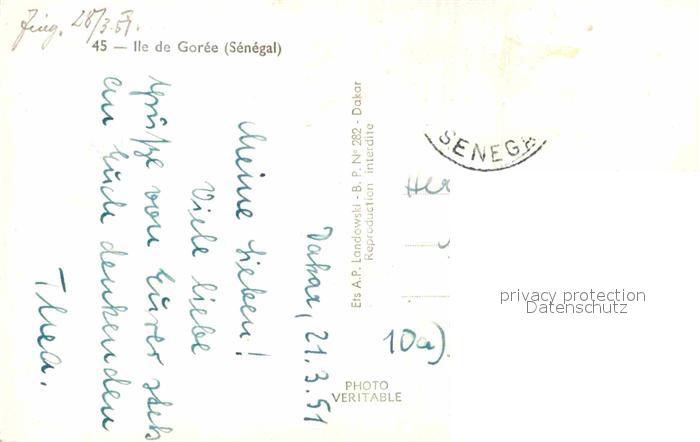 Jing. 28/3.51.
45 — Ile de Gorée (Sénégal)
Dakar, 21.3.51
Meine Lieben!
Viele liebe
Grüße von Eurer stets
an Euch denkenden
Thea.
Ets A.P. Landowski - B. P. N° 282 - Dakar
Reproduction interdite
SENEGA
Her
10a)
privacy protection
Datenschutz
PHOTO
VERITABLE